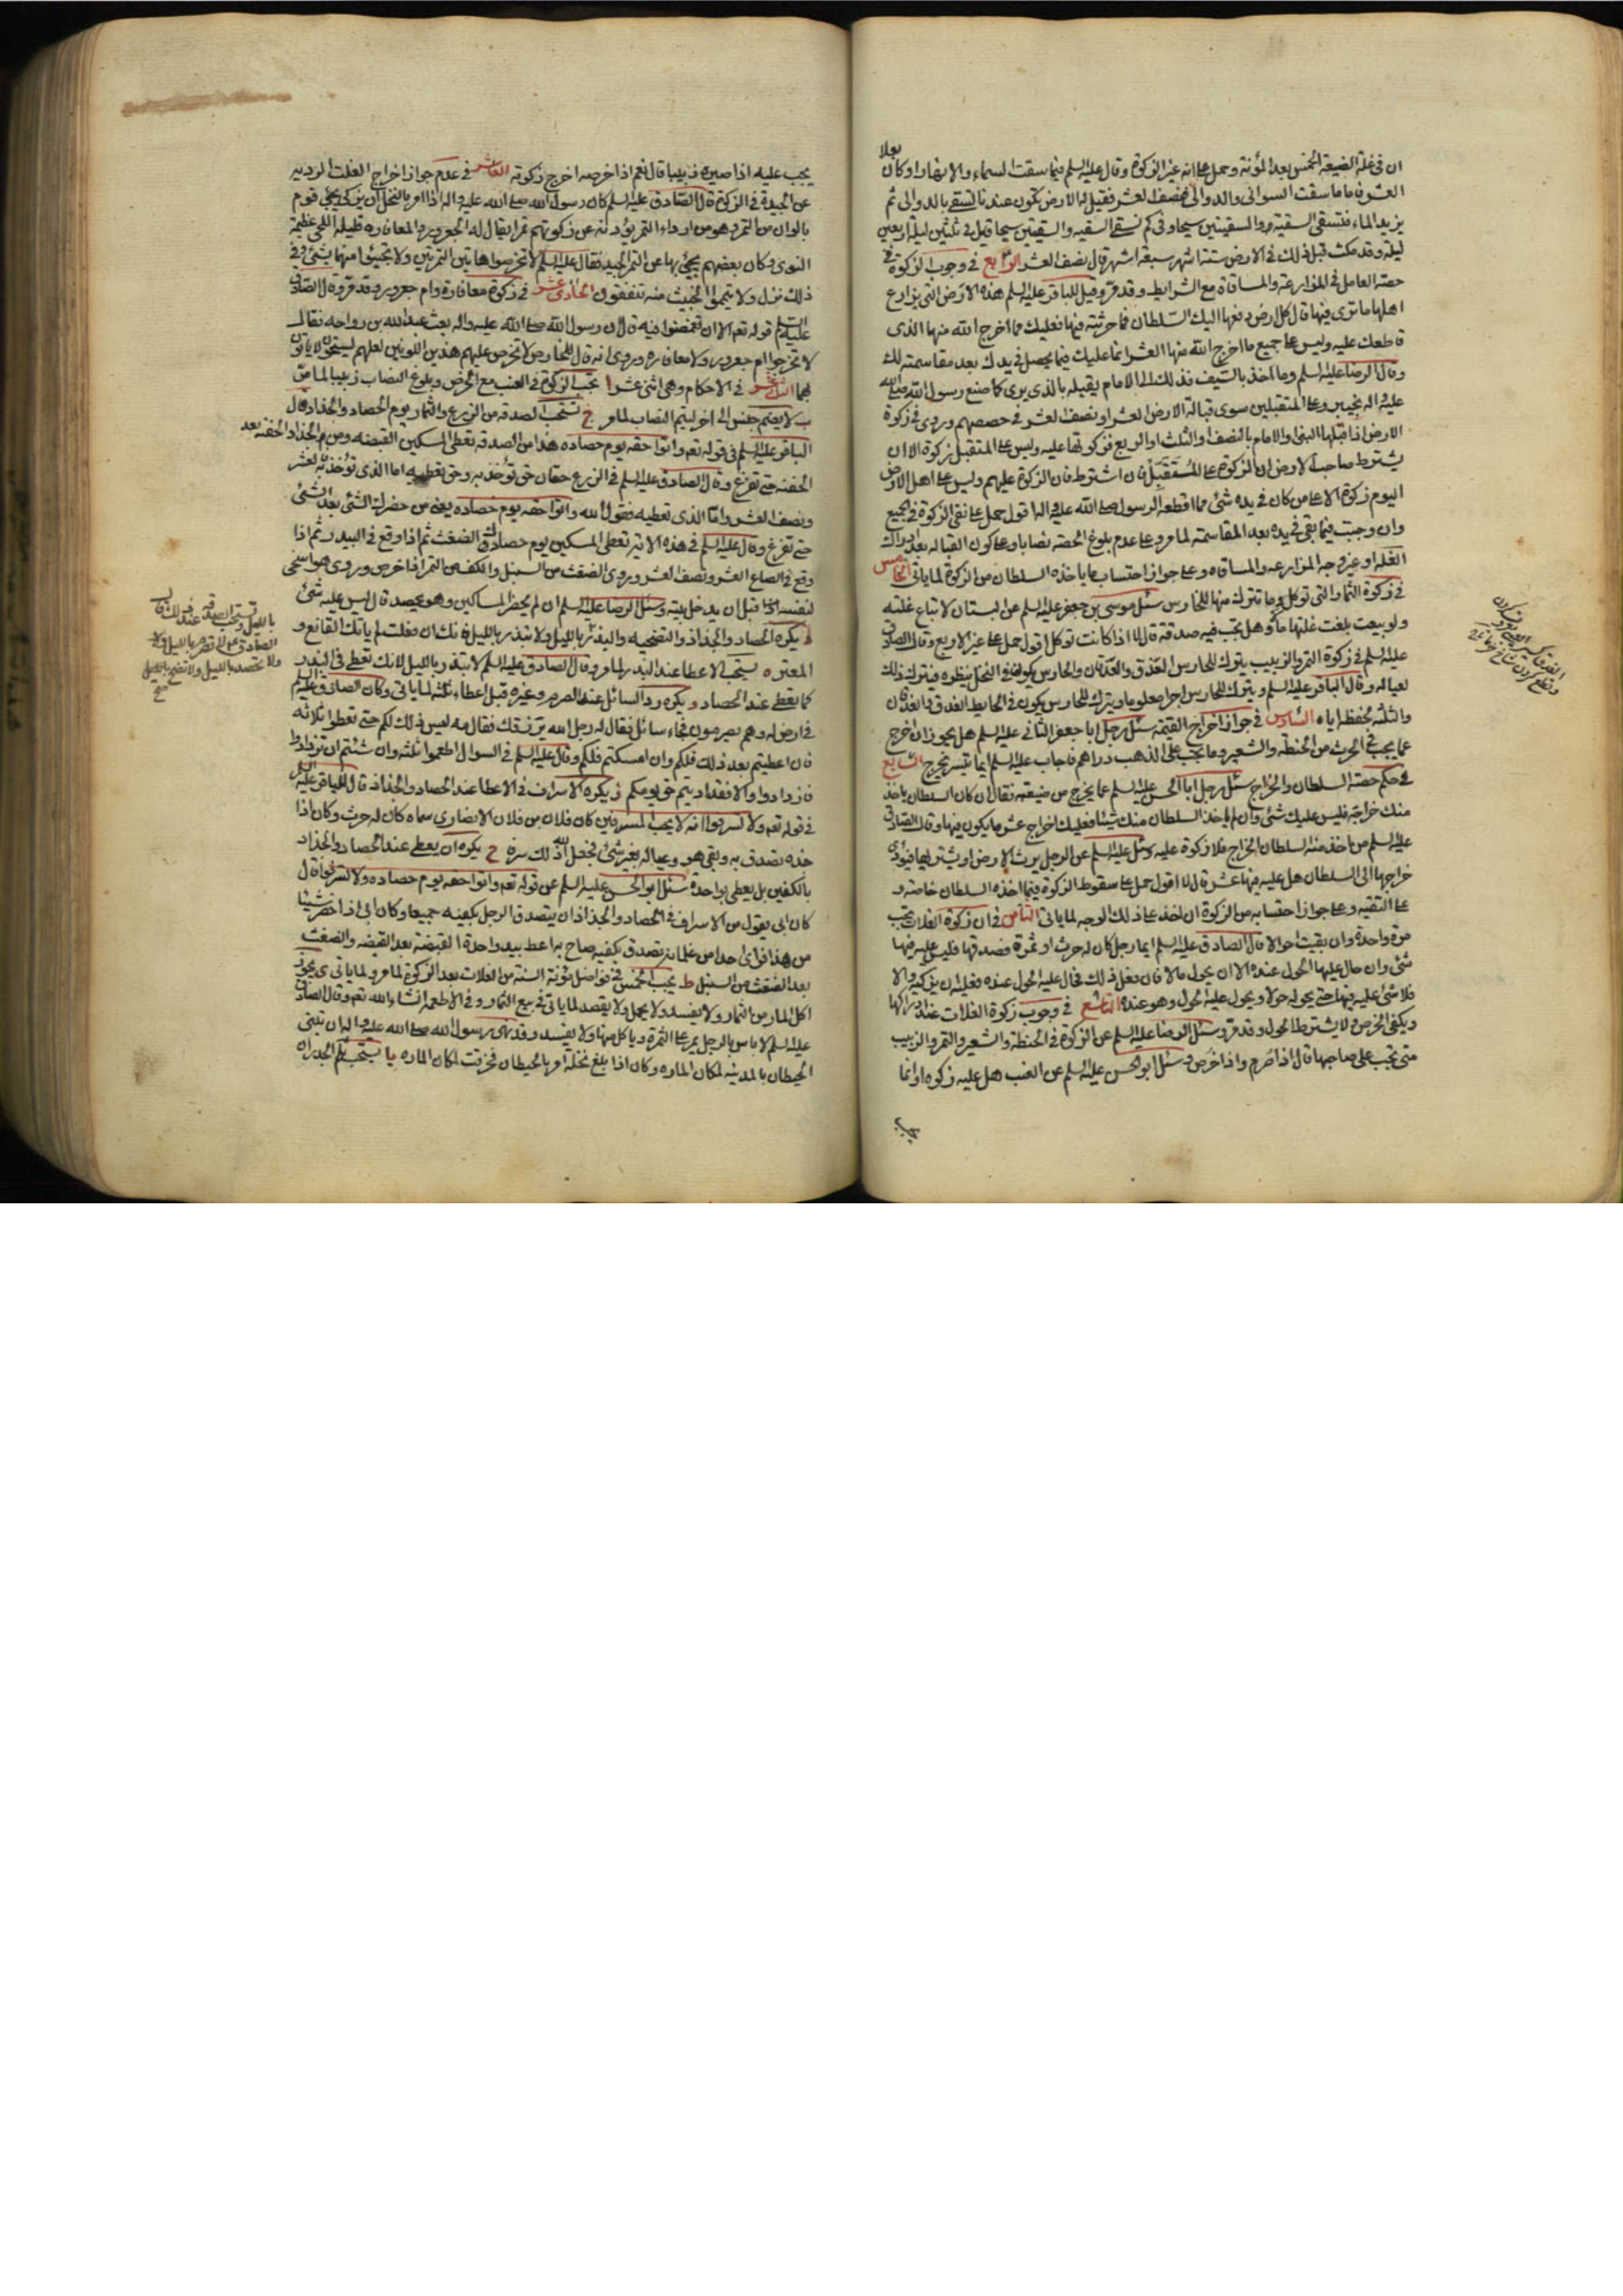 بعلا
ان فی غلة الضیعة الخمس بعد المؤنة وحمل علی انه غیر الزکوة وقال علیه السلم فیما سقت السماء والانهار او کان
العشر فاما ما سقت السوانی والدوالی فنصف العشر فقیل له الارض تکون عندنا تسقی بالدوالی ثم
یزید الماء فتسقی السقیة والسقیتین سیحا وفی کم تسقی السقیه والسقیتین سیحا قیل فی ثلثین لیلة اربعین
لیلة وقد مکث قبل ذلک فی الارض ستة اشهر سبعة اشهر قال نصف العشر الرابع فی وجوب الزکوة فی
حصة العامل فی المزارعة والمساقاة مع الشرایط وقد مر وقیل للباقر علیه السلم هذه الارض التی یزارع
اهلها ما تری فیها قال کل ارض دفعها الیک السلطان فما حرثته فیها فعلیک مما اخرج الله منها الذی
قاطعک علیه ولیس علی جمیع ما اخرج الله منها العشر انما علیک فیما یحصل فی یدک بعد مقاسمته لک
وقال الرضا علیه السلم وما اخذ بالسیف فذلک الی الامام یقبله بالذی یری کما صنع رسول الله صلی الله
علیه واله بخیبر وعلی المتقبلین سوی قبالة الارض العشر او نصف العشر فی حصصهم وروی فی زکوة
الارض اذا قبلها النبی والامام بالنصف او الثلث او الربع فزکوتها علیه ولیس علی المتقبل زکوة الا ان
یشترط صاحب الارض ان الزکوة علی المتقبل فان اشترط فان الزکوة علیهم ولیس علی اهل الارض
الیوم زکوة الا علی من کان فی یده شئ مما اقطعه الرسول صلی الله علیه واله اقول حمل علی نفی الزکوة فی الجمیع
وان وجبت فیما بقی فی یده بعد المقاسمة لما مر وعلی عدم بلوغ الحصة نصابا وعلی کون القباله بعد ادراک
الغلة او غیر وجه المزارعه والمساقاه وعلی جواز احتساب ما یاخذه السلطان من الزکوة لما یاتی الخامس
فی زکوة الثمار التی توکل وما تترک منها للحارس سئل موسی بن جعفر علیه السلم عن البستان لا تباع غلته
ولو بیعت بلغت غلتها مالا وهل تجب فیه صدقة قال لا اذا کانت توکل اقول حمل علی غیر الاربع وقال الصادق
علیه السلم فی زکوة التمر والزبیب یترک للحارس العذق والعذقان والحارس یکون فی النخل ینظره فیترک ذلک
لعیاله وقال الباقر علیه السلم ویترک للحارس اجرا معلوما ویترک للحارس یکون فی الحایط العذق والعذقان
والثلثة لحفظه ایاه السادس فی جواز اخراج القیمة سئل رجل ابا جعفر الثانی علیه السلم هل یجوز ان اخرج
عما یجب فی الحرث من الحنطة والشعیر وما یجب علی الذهب دراهم فاجاب علیه السلم ایما تیسر یخرج السابع
فی حکم حصة السلطان والخراج سئل رجل ابا الحسن علیه السلم عما یخرج من ضیعته فقال ان کان السلطان یاخذ
منک خراجه فلیس علیک شئ وان لم یاخذ السلطان منک شیئا فعلیک اخراج عشر ما یکون فیها وقال الصادق
علیه السلم من اخذ منه السلطان الخراج فلا زکوة علیه وسئل علیه السلم عن الرجل یرث الارض او یشتریها فیؤدی
خراجها الی السلطان هل علیه فیها عشر قال لا اقول حمل علی سقوط الزکوة فیما اخذه السلطان خاصة و
علی التقیه وعلی جواز احتسابه من الزکوة ان اخذ علی ذلک الوجه لما یاتی الثامن فی ان زکوة الغلات تجب
مرة واحدة وان بقیت احوالا قال الصادق علیه السلم ایما رجل کان له حرث او ثمرة فصدقها فلیس علیه فیها
شئ وان حال علیها الحول عنده الا ان یحول مالا فان فعل ذلک فحال علیه الحول عنده فعلیه ان یزکیه والا
فلا شئ علیه فیها حتی یحوله حولا ویحول علیه الحول وهو عنده التاسع فی وجوب زکوة الغلات عند ادراکها
ویکفی الخرص ولا یشترط الحول وقد مر وسئل الرضا علیه السلم عن الزکوة فی الحنطة والشعیر والتمر والزبیب
متی تجب علی صاحبها قال اذا صرم واذا خرص وسئل ابو الحسن علیه السلم عن العنب هل علیه زکوة او انما
یجب
یجب علیه اذا صیره زبیبا قال نعم اذا خرصه اخرج زکوته العاشر فی عدم جواز اخراج الغلة الردیه
عن الجیدة فی الزکوة قال الصادق علیه السلم کان رسول الله صلی الله علیه واله اذا امر بالنخل ان یزکی یجئ قوم
بالوان من التمر وهو من اردء التمر یؤدونه عن زکوتهم تمرا یقال له الجعرور والمعافاره قلیلة اللحی عظیمة
النوی وکان بعضهم یجئ بها عن التمر الجید فقال علیه السلم لا تخرصوا هاتین التمرتین ولا تجیئوا منها بشئ وفی
ذلک نزل ولا تیمموا الخبیث منه تنفقون الحادی عشر فی زکوة معافارة وام جعرور وقد مر وقال الصادق
علیه السلم فی قوله تعم الا ان تغمضوا فیه قال ان رسول الله صلی الله علیه واله بعث عبد الله بن رواحه فقال
لا تخرصوا ام جعرور ولا معافاره وروی انه قال للخارص لا تخرص علیهم هذین اللونین لعلهم یستحیون لا یاتون
بهما الثانی عشر فی الاحکام وهی اثنی عشر ا تجب الزکوة فی العنب مع الخرص وبلوغ النصاب زبیبا لما مر
ب لا یضم جنس الی اخر لیتم النصاب لما مر ج تستحب الصدقة من الزرع والثمار یوم الحصاد والجداد قال
الباقر علیه السلم فی قوله تعم واتوا حقه یوم حصاده هذا من الصدقة تعطی المسکین القبضه ومن الجداد الحفنه بعد
الحفنة حتی تفرغ وقال الصادق علیه السلم فی الزرع حقان حق تؤخذ به وحق تعطیه اما الذی تؤخذ به فالعشر
ونصف العشر واما الذی تعطیه فقول الله واتوا حقه یوم حصاده یعنی من حضرک الشئ بعد الشئ
حتی تفرغ وقال علیه السلم فی هذه الایة تعطی المسکین یوم حصادک الضغث ثم اذا وقع فی البیدر ثم اذا
وقع فی الصاع العشر ونصف العشر وروی الضغث من السنبل والکف من التمر اذا خرص وروی هو اسخی
لنفسه قبل ان یدخل بیته وسئل الرضا علیه السلم ان لم یحضر المساکین وهو یحصد قال لیس علیه شئ
د یکره الحصاد والجذاذ والتضحیه والبذر باللیل ولا تبذر باللیل فانک ان فعلت لم یاتک القانع و
المعتر ه یستحب الاعطا عند البذر لما مر وقال الصادق علیه السلم لا تبذر باللیل لانک تعطی فی البذر
کما تعطی عند الحصاد و یکره رد السائل عند الصرم وغیره قبل اعطاء ثلثه لما یاتی وکان الصادق علیه السلم
فی ارض له وهم یصرمون فجاء سائل فقال له رجل الله یرزقک فقال مه لیس ذلک لکم حتی تعطوا ثلاثه
فان اعطیتم بعد ذلک فلکم وان امسکتم فلکم وقال علیه السلم فی السوال اطعموا ثلثه وان شئتم ان تزدادوا
فازدادوا والا فقد ادیتم حق یومکم ز یکره الاسراف فی الاعطا عند الحصاد والجذاذ قال الباقر علیه السلم
فی قوله تعم ولا تسرفوا انه لا یحب المسرفین کان فلان بن فلان الانصاری سماه کان له حرث وکان اذا
جذه تصدق به وبقی هو وعیاله بغیر شئ فجعل الله ذلک سرفا ح یکره ان یعطی عند الحصاد والجذاذ
بالکفین بل یعطی بواحدة سئل ابو الحسن علیه السلم عن قوله تعم واتوا حقه یوم حصاده ولا تسرفوا قال
کان ابی یقول من الاسراف فی الحصاد والجذاذ ان یتصدق الرجل بکفیه جمیعا وکان ابی اذا حضر شیئا
من هذا فرای احدا من غلمانه یتصدق بکفیه صاح به اعط بید واحدة القبضة بعد القبضه والضغث
بعد الضغث من السنبل ط یجب الخمس فی فواضل مؤنة السنة من الغلات بعد الزکوة لما مر ولما یاتی ی یجوز
اکل المار من الثمار ولا یفسد ولا یحمل ولا یقصد لما یاتی فی بیع الثمار وفی الاطعمه انشاء الله تعم وقال الصادق
علیه السلم لا باس بالرجل یمر علی الثمرة ویاکل منها ولا یفسد وقد نهی رسول الله صلی الله علیه واله ان تبنی
الحیطان بالمدینه لمکان الماره وکان اذا بلغ نخله امر بالحیطان فخرقت لمکان الماره یا یستحب ثلم الجدران
باللیل
الصادق ع لا تصرم باللیل ولا
ولا تحصد باللیل ولا تضح باللیل